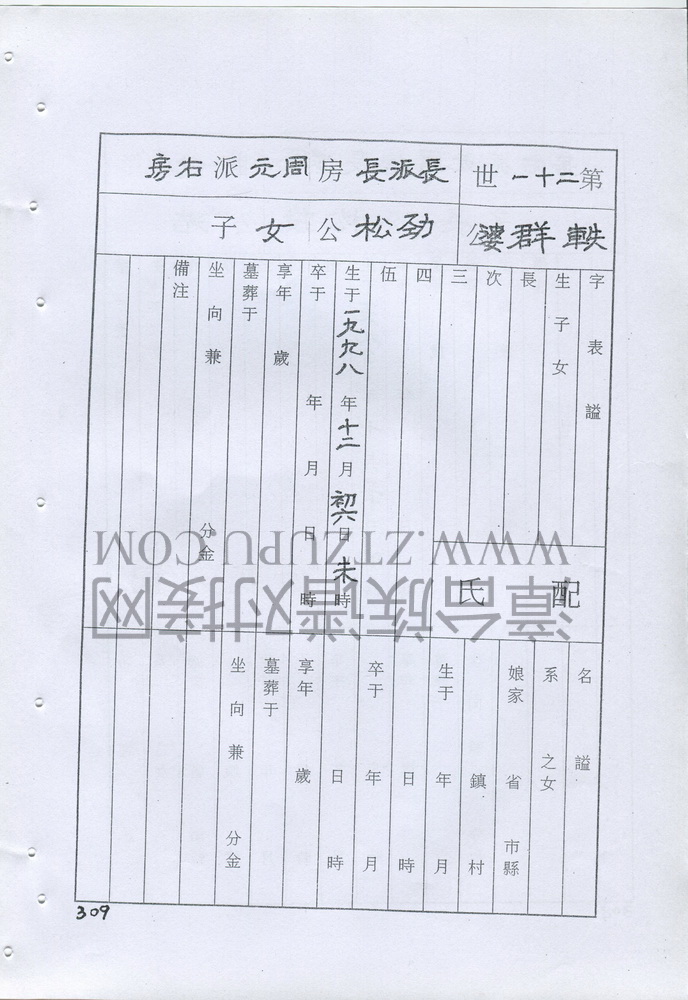 第二十一世
長派長房周元派右房
軼群婆
勁松公女子
字表諡
生子女
長
次
三
四
伍
生于一九九八年十二月初六日未時
卒于 年 月 日 時
享年 歲
墓葬于
坐向兼 分金
備注
配 氏
名諡
系 之女
娘家 省 市縣
鎮 村
生于 年 月
日 時
卒于 年 月
日 時
享年 歲
墓葬于
坐向兼 分金
309
漳台族谱对接网
WWW.ZTZUPU.COM